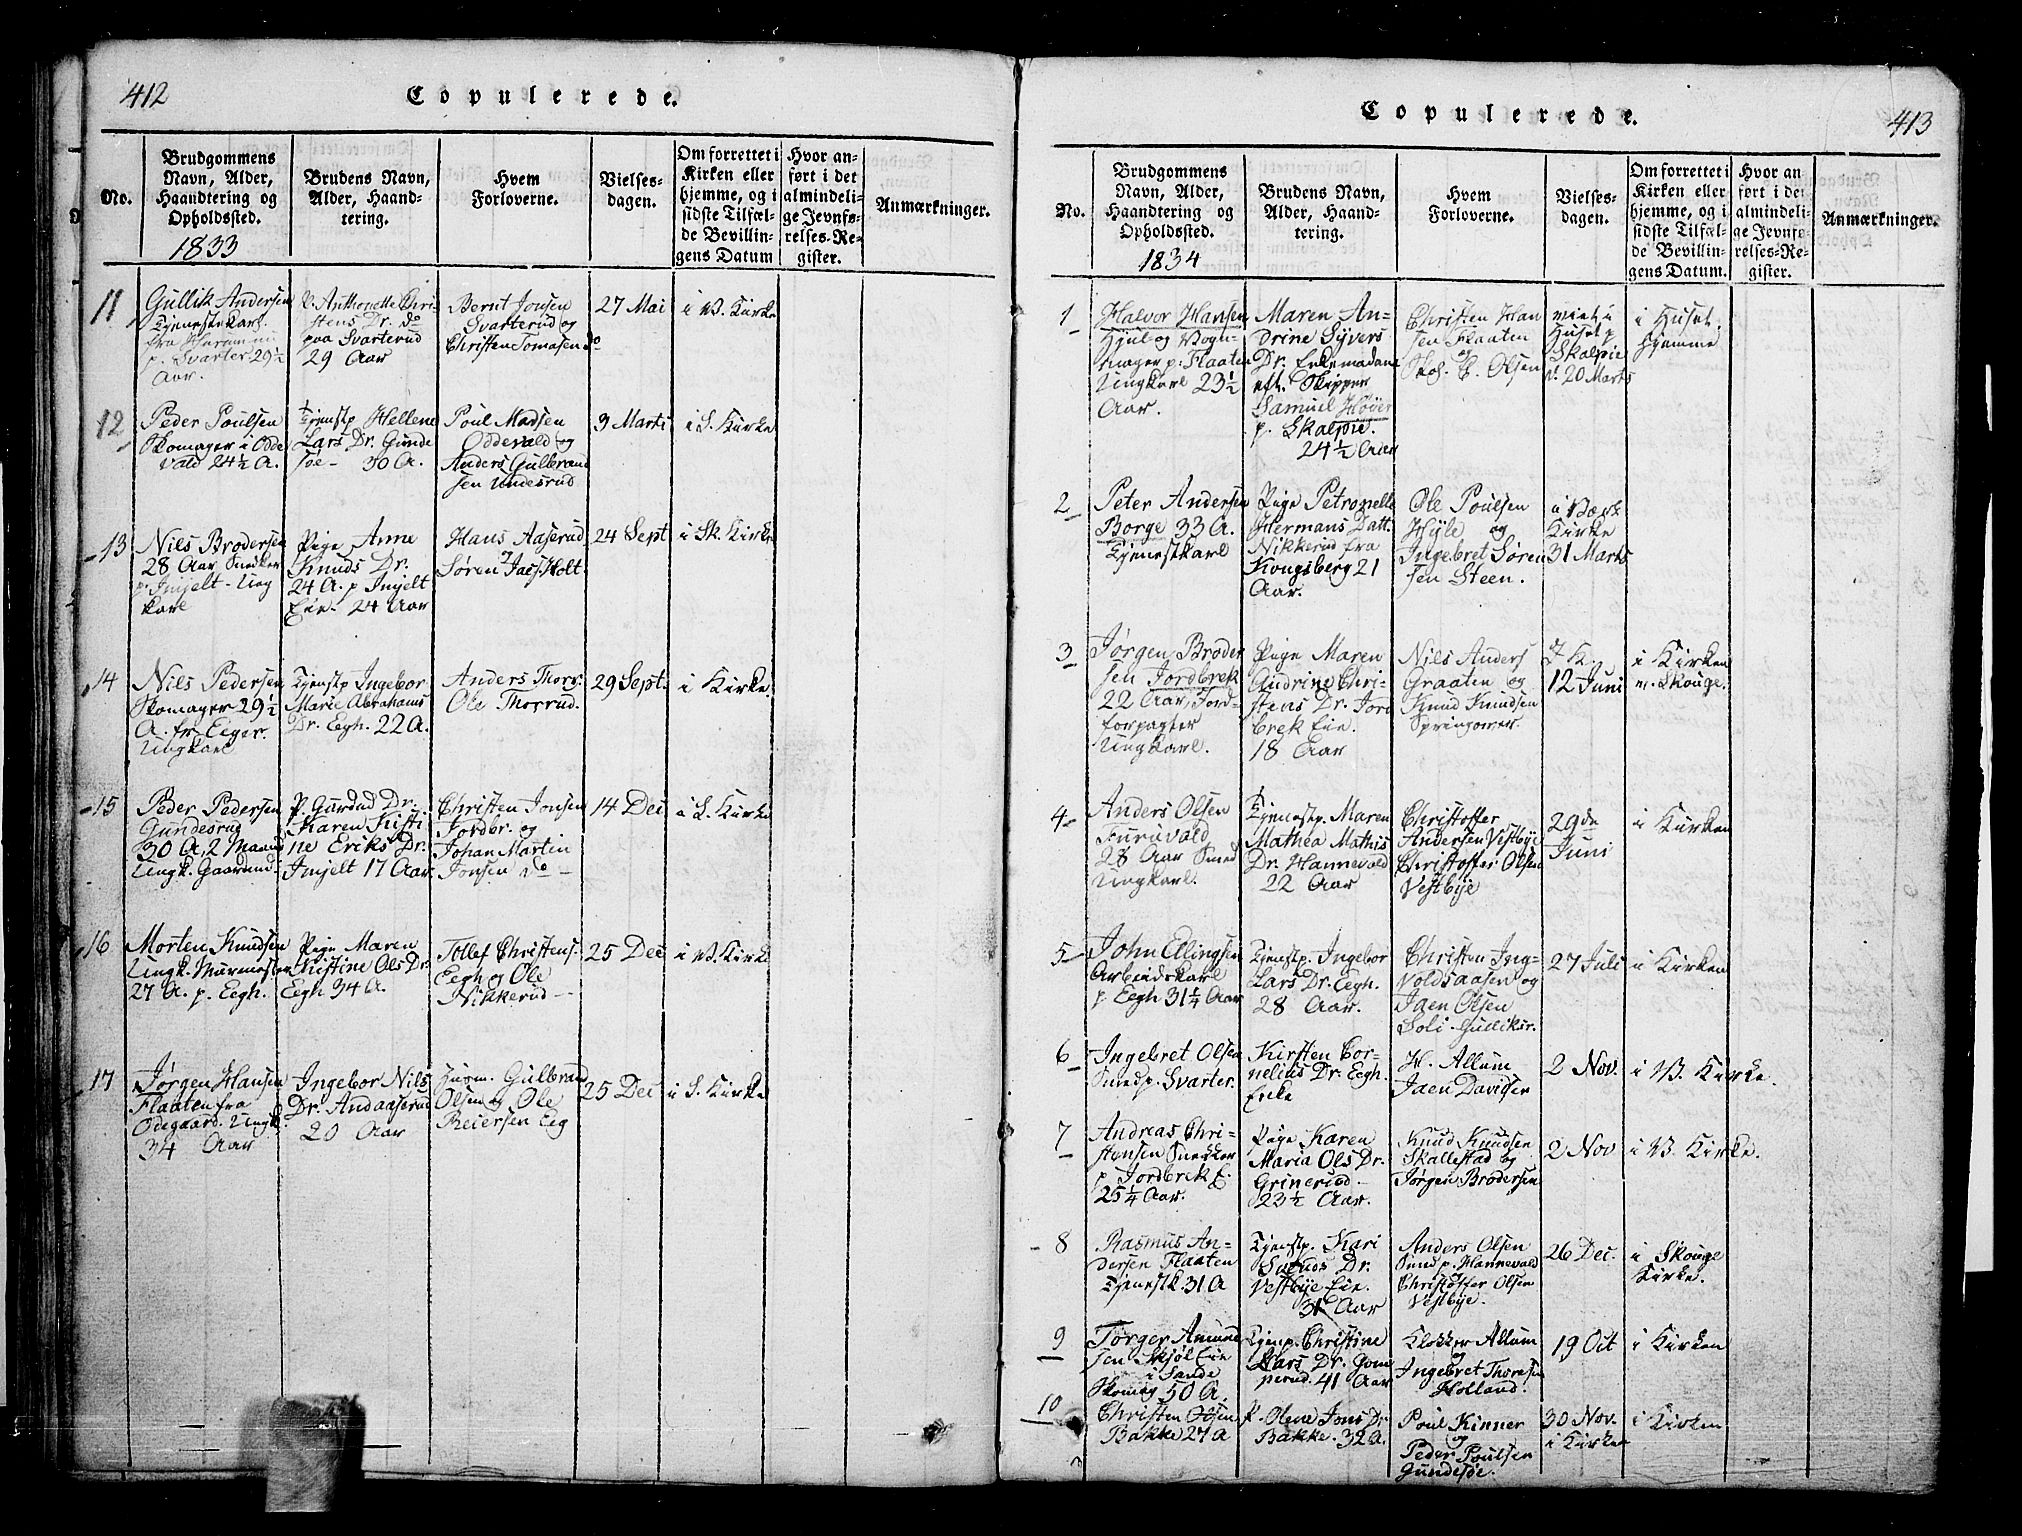 412
Copulerede.
No.
Brudgommens
Navn, Alder,
Haandtering og
Opholdssted.
1833
Brudens Navn,
Alder, Haand-
tering.
Hvem
Forloverne.
Vielses-
dagen.
Om forrettet i
Kirken eller
hjemme, og i
sidste Tilfæl-
de Bevillin-
gens Datum
Hvor an-
ført i det
almindeli-
ge Jevnfø-
relses-Re-
gister.
Anmærkninger.
11
Gullik Andersen
Tjenestekarl
fra
p. Svarter 29½
Aar.
P. Anthonette Chri-
stens Dr. do
paa Svarterud
29 Aar
Bernt Jonsen
Svarterud og
Christen Tomasen do
27 Mai
i V. Kirke
12
Peder Poulsen
Skomager i Odde
vald 24½ A.
Tjenstp Hellene
Lars Dr. Gunde
søe - 30 A.
Poul Madsen
Oddevald og
Anders Gulbrand
sen Undesrud
9 Marti
i S. Kirke
13
Nils Brodersen
28 Aar Snedker
p Imjelt - Ung
karl
Pige Anne
Knuds Dr.
24 A. p Imjelt
Eie - 24 Aar
Hans Aaserud
Søren Jass. Holt
24 Sept
i Sk. Kirke
14
Nils Pedersen
Skomager 29½
A. fr Eiger.
Ungkarl
Tjenstp Ingebor
Marie Abrahams
Dr. Eegh. 22 A.
Anders Thorg.
Ole Thorrud.
29 Sept.
i Kirke
15
Peder Pedersen
Gundesrud
30 A. 2 Maaned
Ungk. Gaarmd.
P. Gurdud Dr.
Karen Kisti
ne Eriks Dr.
Imjelt 17 Aar.
Christen Jonsen
Jordbr. og
Johan Martin
Jonsen do -
14 Dec
i S. Kirke
16
Morten Knudsen
Ungk. Murmester
27 A. p. Eegh.
Pige Maren
Kistine Ols Dr.
Eegh 34 A.
Tollef Christens.
Eegh og Ole
Nikkerud -
25 Dec
i V. Kirke
17
Jørgen Hansen
Flaaten fra
Odegaard. Ungk.
34 Aar
Ingebor Nils
Dr. Andaaserud
20 Aar
Gulbrand
Olsen og Ole
Reiersen Eeg
25 Dec
i S. Kirke
413
Copulerede.
No.
Brudgommens
Navn, Alder,
Haandtering og
Opholdssted.
1834
Brudens Navn,
Alder, Haand-
tering.
Hvem
Forloverne.
Vielses-
dagen.
Om forrettet i
Kirken eller
hjemme, og i
sidste Tilfæl-
de Bevillin-
gens Datum.
Hvor an-
ført i det
almindeli-
ge Jevnfø-
relses-Re-
gister.
Anmærkninger.
1
Halvor Hansen
Hjul og Vogn-
mager p. Flaaten
Ungkarl 23½
Aar.
Maren An-
drine Syvers
Dr. Enkemadame
eft. Skipper
Samuel Høyer
p. Skalpie.
24½ Aar
Christen Han
sen Flaaten
og
Skoh. C. Olsen
viet i
Huset p
Skalpie
d. 20 Marts
i Huset.
hjemme
2
Peter Andersen
Borge 33 A.
Tjenestkarl
Pige Petronelle
Hermans Datt.
Nikkerud fra
Kongsberg 21
Aar.
Ole Poulsen
Hyle og
Ingebret Søren
sen Steen.
i Værk
Kirke
31 Marts
3
Jørgen Broder
sen Jordbrek
22 Aar, Jord-
forpagter
Ungkarl.
Pige Maren
Andrine Chri-
stens Dr. Jord
brek Eie.
18 Aar
Nils Anders
Graaten og
Knud Knudsen
Springover.
12 Juni
i Kirken
v. Skouge.
4
Anders Olsen
Furuvald
28 Aar Smed
Ungkarl.
Tjenestp. Maren
Mathea Mathis
Dr. Hannevald
22 Aar
Christoffer
Andersen Vestbye
Christoffer Olsen
Vestbye
29de
Juni
i Kirken
5
John Ellingsen
Arbeidskarl
p Eegh 31¼ Aar
Tjenstp. Ingebor
Lars Dr. Eegh.
28 Aar.
Christen Ing-
voldsaasen og
Jaen Olsen
Soli - Gulliksr.
27 Juli
i Kirken
6
Ingebret Olsen
Smed p. Svarter.
Kirsten Cor-
nelius Dr. Eegh.
Enke
H. Allum
Jaen Davidsen
2 Nov.
i V. Kirke.
7
Andreas Chri-
stensen Snekker
p Jordbrek E.
25¼ Aar.
Pige Karen
Maria Ols Dr.
Grinerud -
23½ Aar.
Knud Knudsen
Skallestad og
Jørgen Brodersen
2 Nov
i V. Kirke.
8
Rasmus An-
dersen Flaaten
Tjenestk. 31 A
Tjenstp. Kari
Svends Dr.
Vestbye Eie.
31 Aar
Anders Olsen
Smed p. Hannevald
Christoffer Olsen
Vestbye.
26 Dec.
i Skouge
Kirke.
9
Torger Amund
sen Skjøl Eie
i Sande
Skomag 50 A.
Tjenp. Christine
Lars Dr. Gom
perud. 41 Aar
Klokker Allum
og
Ingebret Thoresen
Holland.
19 Oct
i Kirken
10
Christen Olsen
Bakke 27 A
P. Olene Jons Dr
Bakke. 32 A.
Poul Kinner
og
Peder Poulsen
Gundesøe.
30 Nov.
i Kirken
i Kirken